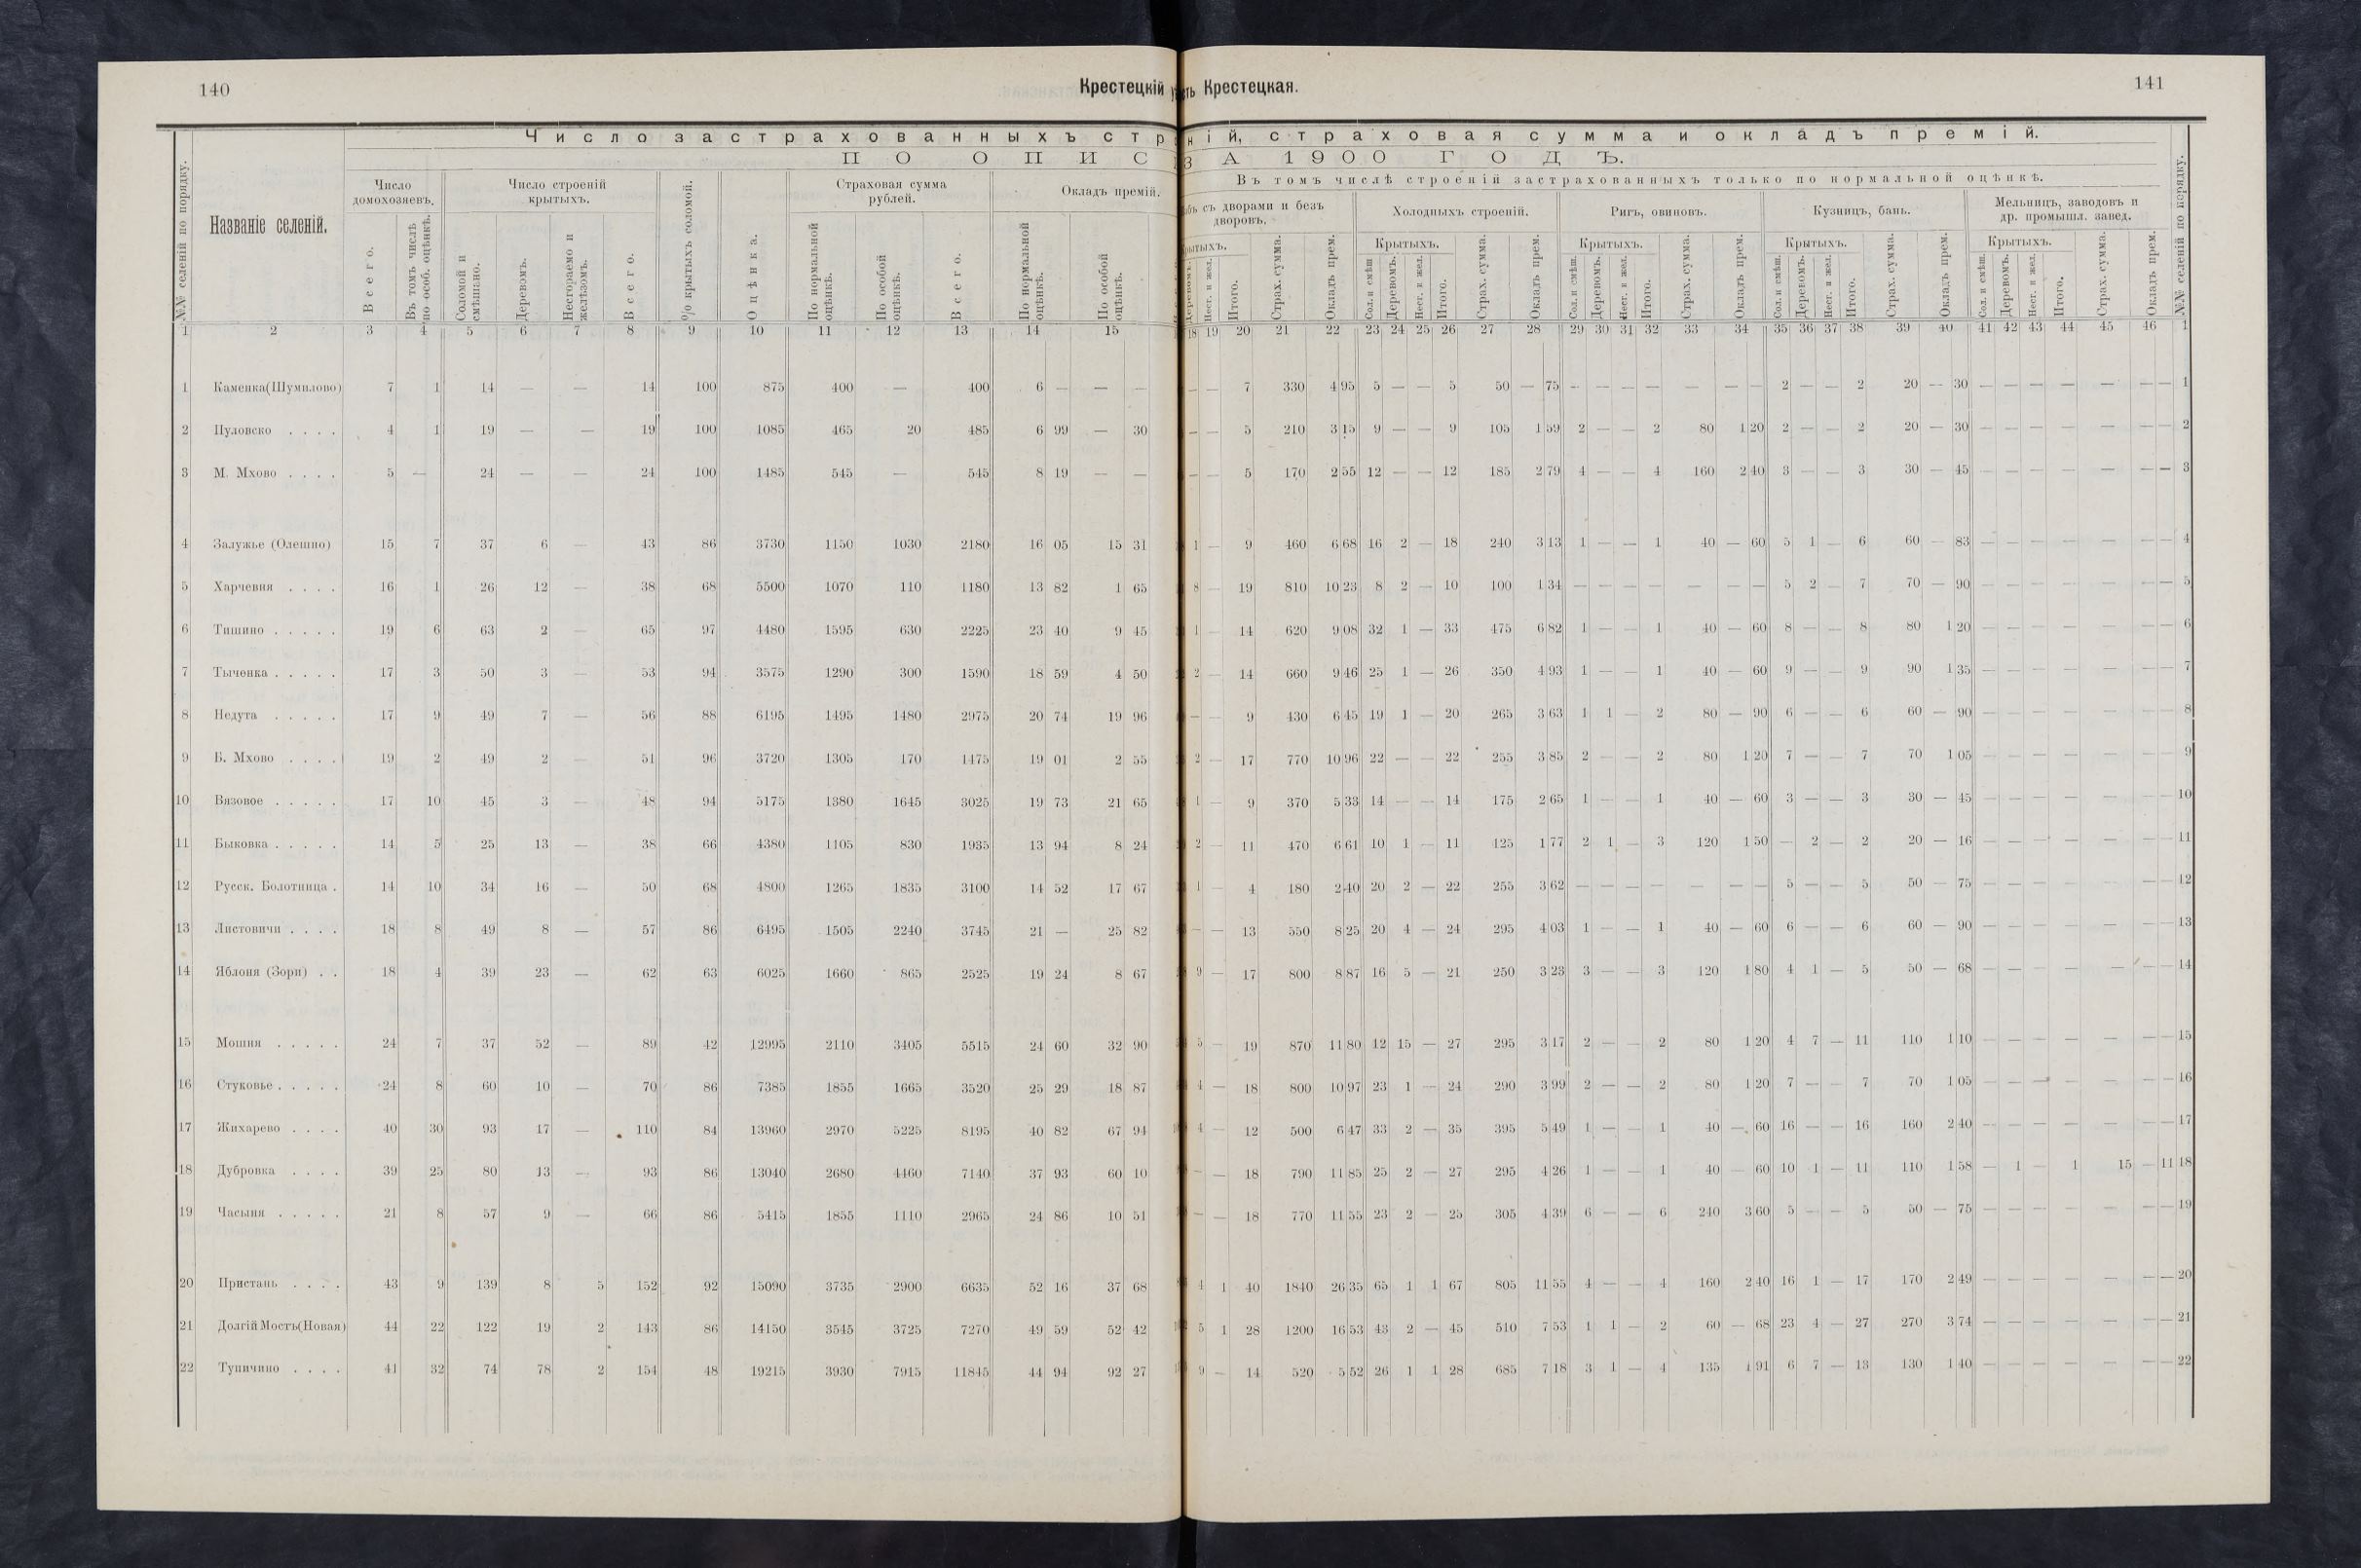 140
Крестецкій
ть Крестецкая.
141
Число застрахованныхъ стр
ній, страховая сумма и окладъ премій.
ПО ОПИС
ЗА 1900 ГОДЪ.
№№ селеній по порядку.
Названіе селеній.
Число домохозяевъ.
Всего.
Въ томъ числѣ по особ. оцѣнкѣ.
Число строеній крытыхъ.
Соломой и смѣшано.
Деревомъ.
Несгораемо и желѣзомъ.
Всего.
% крытыхъ соломой.
Оцѣнка.
Страховая сумма рублей.
По нормальной оцѣнкѣ.
По особой оцѣнкѣ.
Всего.
Окладъ премій.
По нормальной оцѣнкѣ.
По особой оцѣнкѣ.
Въ томъ числѣ строеній застрахованныхъ только по нормальной оцѣнкѣ.
съ дворами и безъ дворовъ.
Деревомъ.
Несг. и жел.
Итого.
Страх. сумма.
Окладъ прем.
Холодныхъ строеній.
Крытыхъ.
Сол. и смѣш.
Деревомъ.
Несг. и жел.
Итого.
Страх. сумма.
Окладъ прем.
Ригъ, овиновъ.
Крытыхъ.
Сол. и смѣш.
Деревомъ.
Несг. и жел.
Итого.
Страх. сумма.
Окладъ прем.
Кузницъ, бань.
Крытыхъ.
Сол. и смѣш.
Деревомъ.
Несг. и жел.
Итого.
Страх. сумма.
Окладъ прем.
Мельницъ, заводовъ и др. промышл. завед.
Крытыхъ.
Сол. и смѣш.
Деревомъ.
Несг. и жел.
Итого.
Страх. сумма.
Окладъ прем.
№№ селеній по порядку.
1 2 3 4 5 6 7 8 9 10 11 12 13 14 15 18 19 20 21 22 23 24 25 26 27 28 29 30 31 32 33 34 35 36 37 38 39 40 41 42 43 44 45 46 1
1 Каменка(Шумилово) 7 1 14 — — 14 100 875 400 — 400 6 — — — — — 7 330 4 95 5 — — 5 50 — 75 — — — — — — — 2 — — 2 20 — 30 — — — — — — — 1
2 Пуловско . . . . 4 1 19 — — 19 100 1085 465 20 485 6 99 — 30 — — 5 210 3 15 9 — — 9 105 1 59 2 — — 2 80 1 20 2 — — 2 20 — 30 — — — — — — — 2
3 М. Мхово . . . . 5 — 24 — — 24 100 1485 545 — 545 8 19 — — — — 5 170 2 55 12 — — 12 185 2 79 4 — — 4 160 2 40 3 — — 3 30 — 45 — — — — — — — 3
4 Залужье (Олешно) 15 7 37 6 — 43 86 3730 1150 1030 2180 16 05 15 31 1 — 9 460 6 68 16 2 — 18 240 3 13 1 — — 1 40 — 60 5 1 — 6 60 — 83 — — — — — — — 4
5 Харчевня . . . . 16 1 26 12 — 38 68 5500 1070 110 1180 13 82 1 65 8 — 19 810 10 23 8 2 — 10 100 1 34 — — — — — — — 5 2 — 7 70 — 90 — — — — — — — 5
6 Тишино . . . . . 19 6 63 2 — 65 97 4480 1595 630 2225 23 40 9 45 1 — 14 620 9 08 32 1 — 33 475 6 82 1 — — 1 40 — 60 8 — — 8 80 1 20 — — — — — — — 6
7 Тыченка . . . . . 17 3 50 3 — 53 94 3575 1290 300 1590 18 59 4 50 2 — 14 660 9 46 25 1 — 26 350 4 93 1 — — 1 40 — 60 9 — — 9 90 1 35 — — — — — — — 7
8 Недута . . . . . 17 9 49 7 — 56 88 6195 1495 1480 2975 20 74 19 96 — — 9 430 6 45 19 1 — 20 265 3 63 1 1 — 2 80 — 90 6 — — 6 60 — 90 — — — — — — — 8
9 Б. Мхово . . . . 19 2 49 2 — 51 96 3720 1305 170 1475 19 01 2 55 2 — 17 770 10 96 22 — — 22 255 3 85 2 — — 2 80 1 20 7 — — 7 70 1 05 — — — — — — — 9
10 Вязовое . . . . . 17 10 45 3 — 48 94 5175 1380 1645 3025 19 73 21 65 1 — 9 370 5 33 14 — — 14 175 2 65 1 — — 1 40 — 60 3 — — 3 30 — 45 — — — — — — — 10
11 Быковка . . . . . 14 5 25 13 — 38 66 4380 1105 830 1935 13 94 8 24 2 — 11 470 6 61 10 1 — 11 125 1 77 2 1 — 3 120 1 50 — 2 — 2 20 — 16 — — — — — — — 11
12 Русск. Болотница . 14 10 34 16 — 50 68 4800 1265 1835 3100 14 52 17 67 1 — 4 180 2 40 20 2 — 22 255 3 62 — — — — — — — 5 — — 5 50 — 75 — — — — — — — 12
13 Листовичи . . . . 18 8 49 8 — 57 86 6495 1505 2240 3745 21 — 25 82 — — 13 550 8 25 20 4 — 24 295 4 03 1 — — 1 40 — 60 6 — — 6 60 — 90 — — — — — — — 13
14 Яблоня (Зори) . . 18 4 39 23 — 62 63 6025 1660 865 2525 19 24 8 67 9 — 17 800 8 87 16 5 — 21 250 3 23 3 — — 3 120 1 80 4 1 — 5 50 — 68 — — — — — — — 14
15 Мошня . . . . . 24 7 37 52 — 89 42 12995 2110 3405 5515 24 60 32 90 5 — 19 870 11 80 12 15 — 27 295 3 17 2 — — 2 80 1 20 4 7 — 11 110 1 10 — — — — — — — 15
16 Стуковье . . . . . 24 8 60 10 — 70 86 7385 1855 1665 3520 25 29 18 87 4 — 18 800 10 97 23 1 — 24 290 3 99 2 — — 2 80 1 20 7 — — 7 70 1 05 — — — — — — — 16
17 Жихарево . . . . 40 30 93 17 — 110 84 13960 2970 5225 8195 40 82 67 94 4 — 12 500 6 47 33 2 — 35 395 5 49 1 — — 1 40 — 60 16 — — 16 160 2 40 — — — — — — — 17
18 Дубровка . . . . 39 25 80 13 — 93 86 13040 2680 4460 7140 37 93 60 10 — — 18 790 11 85 25 2 — 27 295 4 26 1 — — 1 40 — 60 10 1 — 11 110 1 58 — 1 — 1 15 — 11 18
19 Часыня . . . . . 21 8 57 9 — 66 86 5415 1855 1110 2965 24 86 10 51 — — 18 770 11 55 23 2 — 25 305 4 39 6 — — 6 240 3 60 5 — — 5 50 — 75 — — — — — — — 19
20 Пристань . . . . 43 9 139 8 5 152 92 15090 3735 2900 6635 52 16 37 68 4 1 40 1840 26 35 65 1 1 67 805 11 55 4 — — 4 160 2 40 16 1 — 17 170 2 49 — — — — — — — 20
21 Долгій Мостъ(Новая) 44 22 122 19 2 143 86 14150 3545 3725 7270 49 59 52 42 5 1 28 1200 16 53 43 2 — 45 510 7 53 1 1 — 2 60 — 68 23 4 — 27 270 3 74 — — — — — — — 21
22 Тупичино . . . . 41 32 74 78 2 154 48 19215 3930 7915 11845 44 94 92 27 9 — 14 520 5 52 26 1 1 28 685 7 18 3 1 — 4 135 1 91 6 7 — 13 130 1 40 — — — — — — — 22